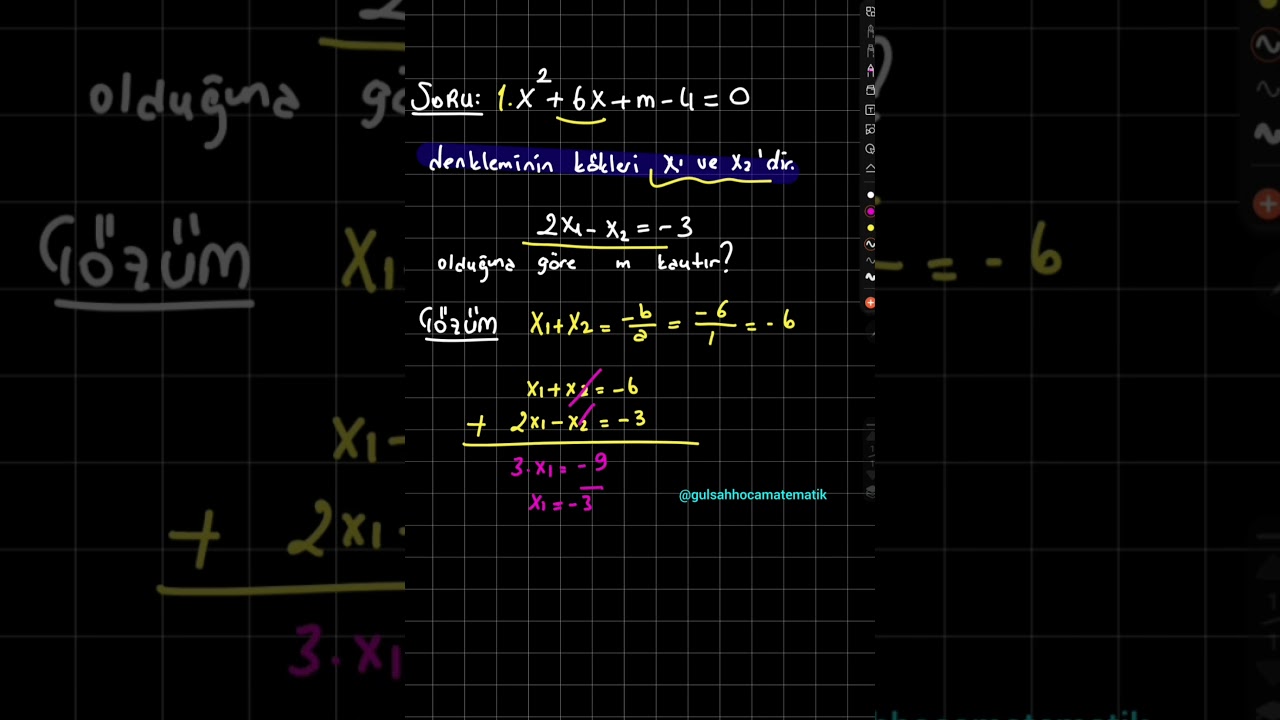 SORU: 1.x² + 6x + m - 4 = 0
denkleminin kökleri x₁ ve x₂'dir.
2x₁ - x₂ = -3
olduğuna göre m kaçtır?
Çözüm x₁ + x₂ = -b/a = -6/1 = -6
x₁ + x₂ = -6
+ 2x₁ - x₂ = -3
3.x₁ = -9
x₁ = -3
@gulsahhocamatematik